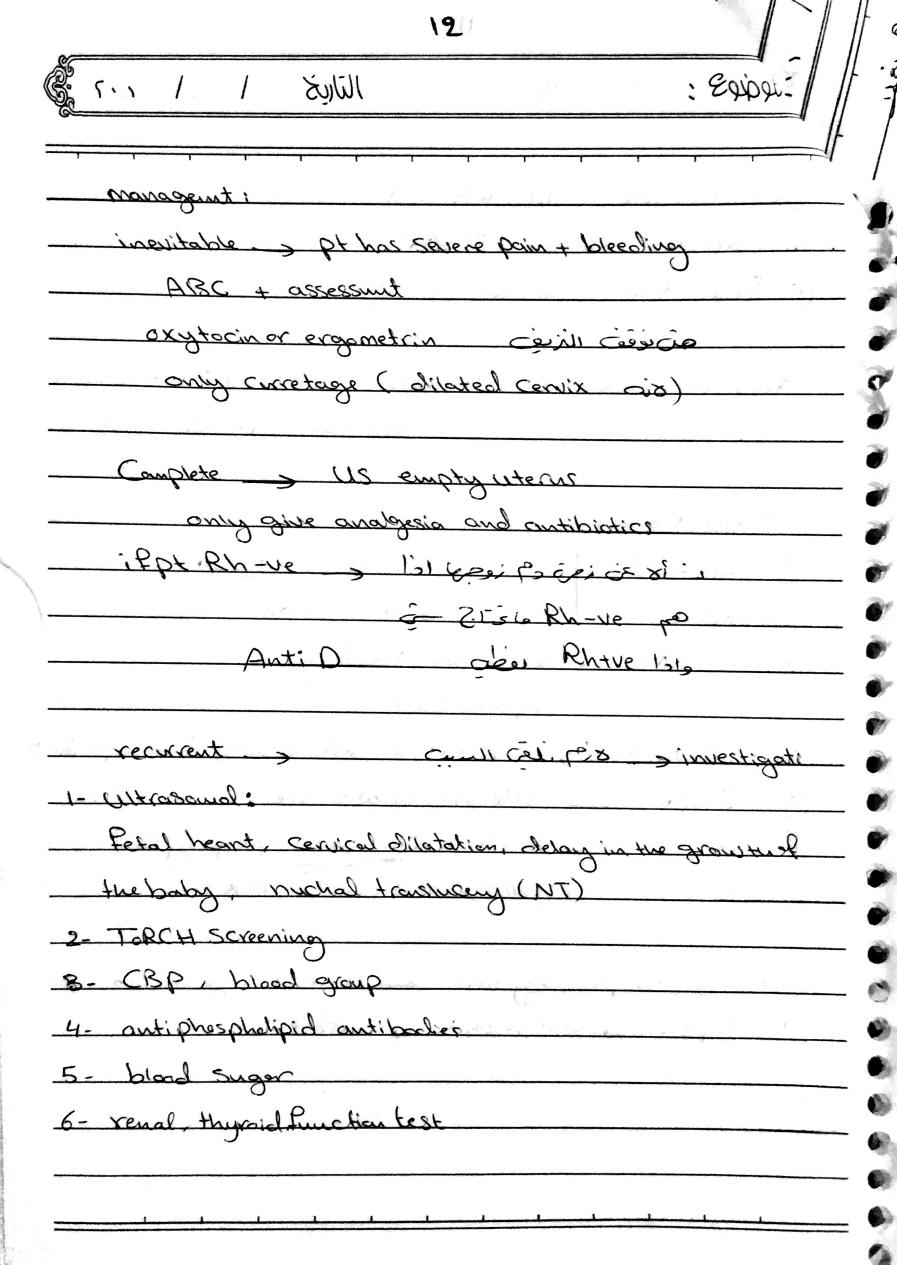 12
الموضوع :
التاريخ / / ٢٠١
managemt :
inevitable → pt has severe pain + bleeding
ABC + assessmt
oxytocin or ergometrin حتى نوقف النزيف
only curretage ( dilated cervix لانه )
Complete → US empty uterus
only give analgesia and antibiotics
if pt Rh-ve → نسأله عن زمرة دم زوجها اذا
هم Rh-ve ما نحتاج شي
واذا Rh+ve نعطيه Anti D
recurrent → لازم نلقى السبب → investigati
1- Ultrasound :
fetal heart, cervical dilatation, delay in the growth of
the baby, nuchal translucency (NT)
2- ToRCH Screening
3- CBP, blood group
4- antiphospholipid antibodies
5- blood suger
6- renal, thyroid function test